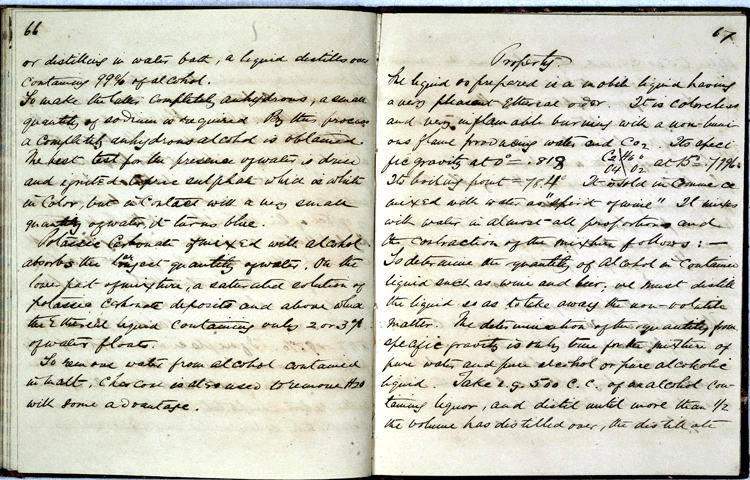 66
or distilling in water bath, a liquid distills over
containing 99% of alcohol.
To make the latter completely anhydrous, a small
quantity of sodium is required. By this process
a completely anhydrous alcohol is obtained.
The best test for the presence of water is dried
and ignited cupric sulphate which is white
in color, but in contact with a very small
quantity of water, it turns blue.
Potassic Carbonate if mixed with alcohol
absorbs the largest quantity of water. On the
lower part of mixture, a saturated solution of
potassic carbonate deposits and above which
the Ethereal liquid containing only 2 or 3 %
of water floats.
To remove water from alcohol contained
in malt, Charcoal is also used to remove H2O
with some advantage.
67
Property
The liquid so prepared is a mobile liquid having
a very pleasant Ethereal odor. It is colorless
and very inflammable burning with a non-lumi-
nous flame producing water and CO2. Its speci-
fic gravity at 0° = .818 C2 H6 O C4 O2 at 15° = .7946
Its boiling point = 78.4° It is sold in Commerce
mixed with water as "spirit of wine" It mixes
with water in almost all proportions and
the contraction of the mixture follows: —
To determine the quantity of Alcohol in containing
liquid such as wine and beer, we must distill
the liquid so as to take away the non-volatile
matter. The determination of the quantity from
specific gravity is only true for the mixture of
pure water and pure alcohol or pure alcoholic
liquid. Take e.g. 500 c.c. of an alcohol con-
taining liquor, and distil until more than 1/2
the volume has distilled over, the distillate